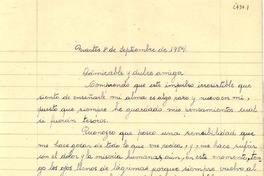 Martes 8 de Septiembre de 1954
Admirable y dulce amiga:
Comprendo que este impulso irresistible que
siento de enseñarle mi alma es algo raro y nuevo en mi,
puesto que siempre he guardado mis pensamientos cual
si fueran tesoros.
Run que posee una sensibilidad que
me hace gozar de todo lo que me rodea, y que me hace sufrir
con el dolor y la miseria humanas, aun, en este momento, tengo
los ojos llenos de lágrimas porque siempre vuelvo al